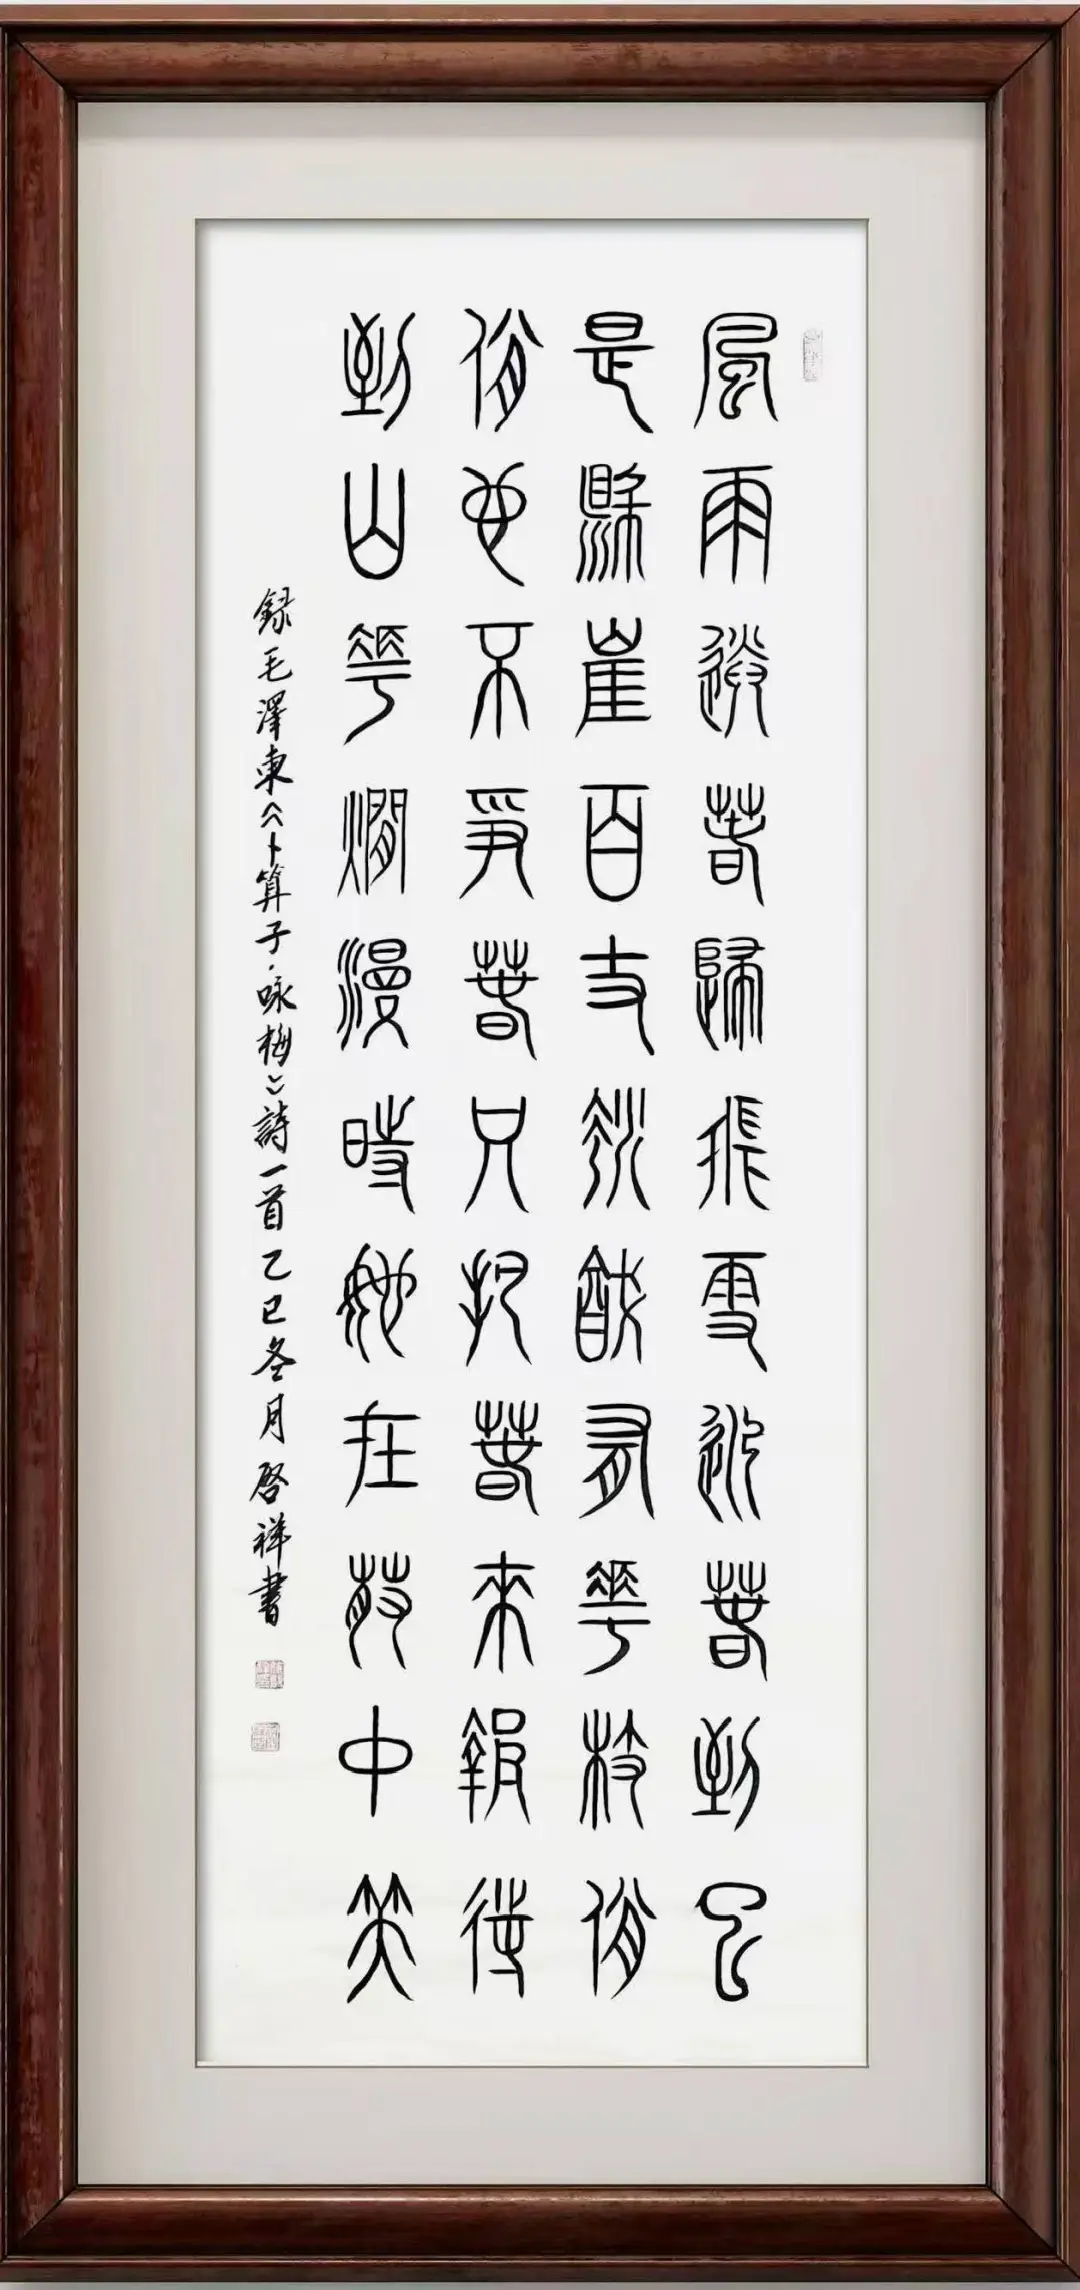 風雨送春歸飛雪迎春到已
是縣崖百丈冰猷有華枝俏
俏也不爭春只把春來報待
到山華爛漫時她在叢中笑
録毛澤東《卜算子·咏梅》詩一首乙巳冬月啓祥書